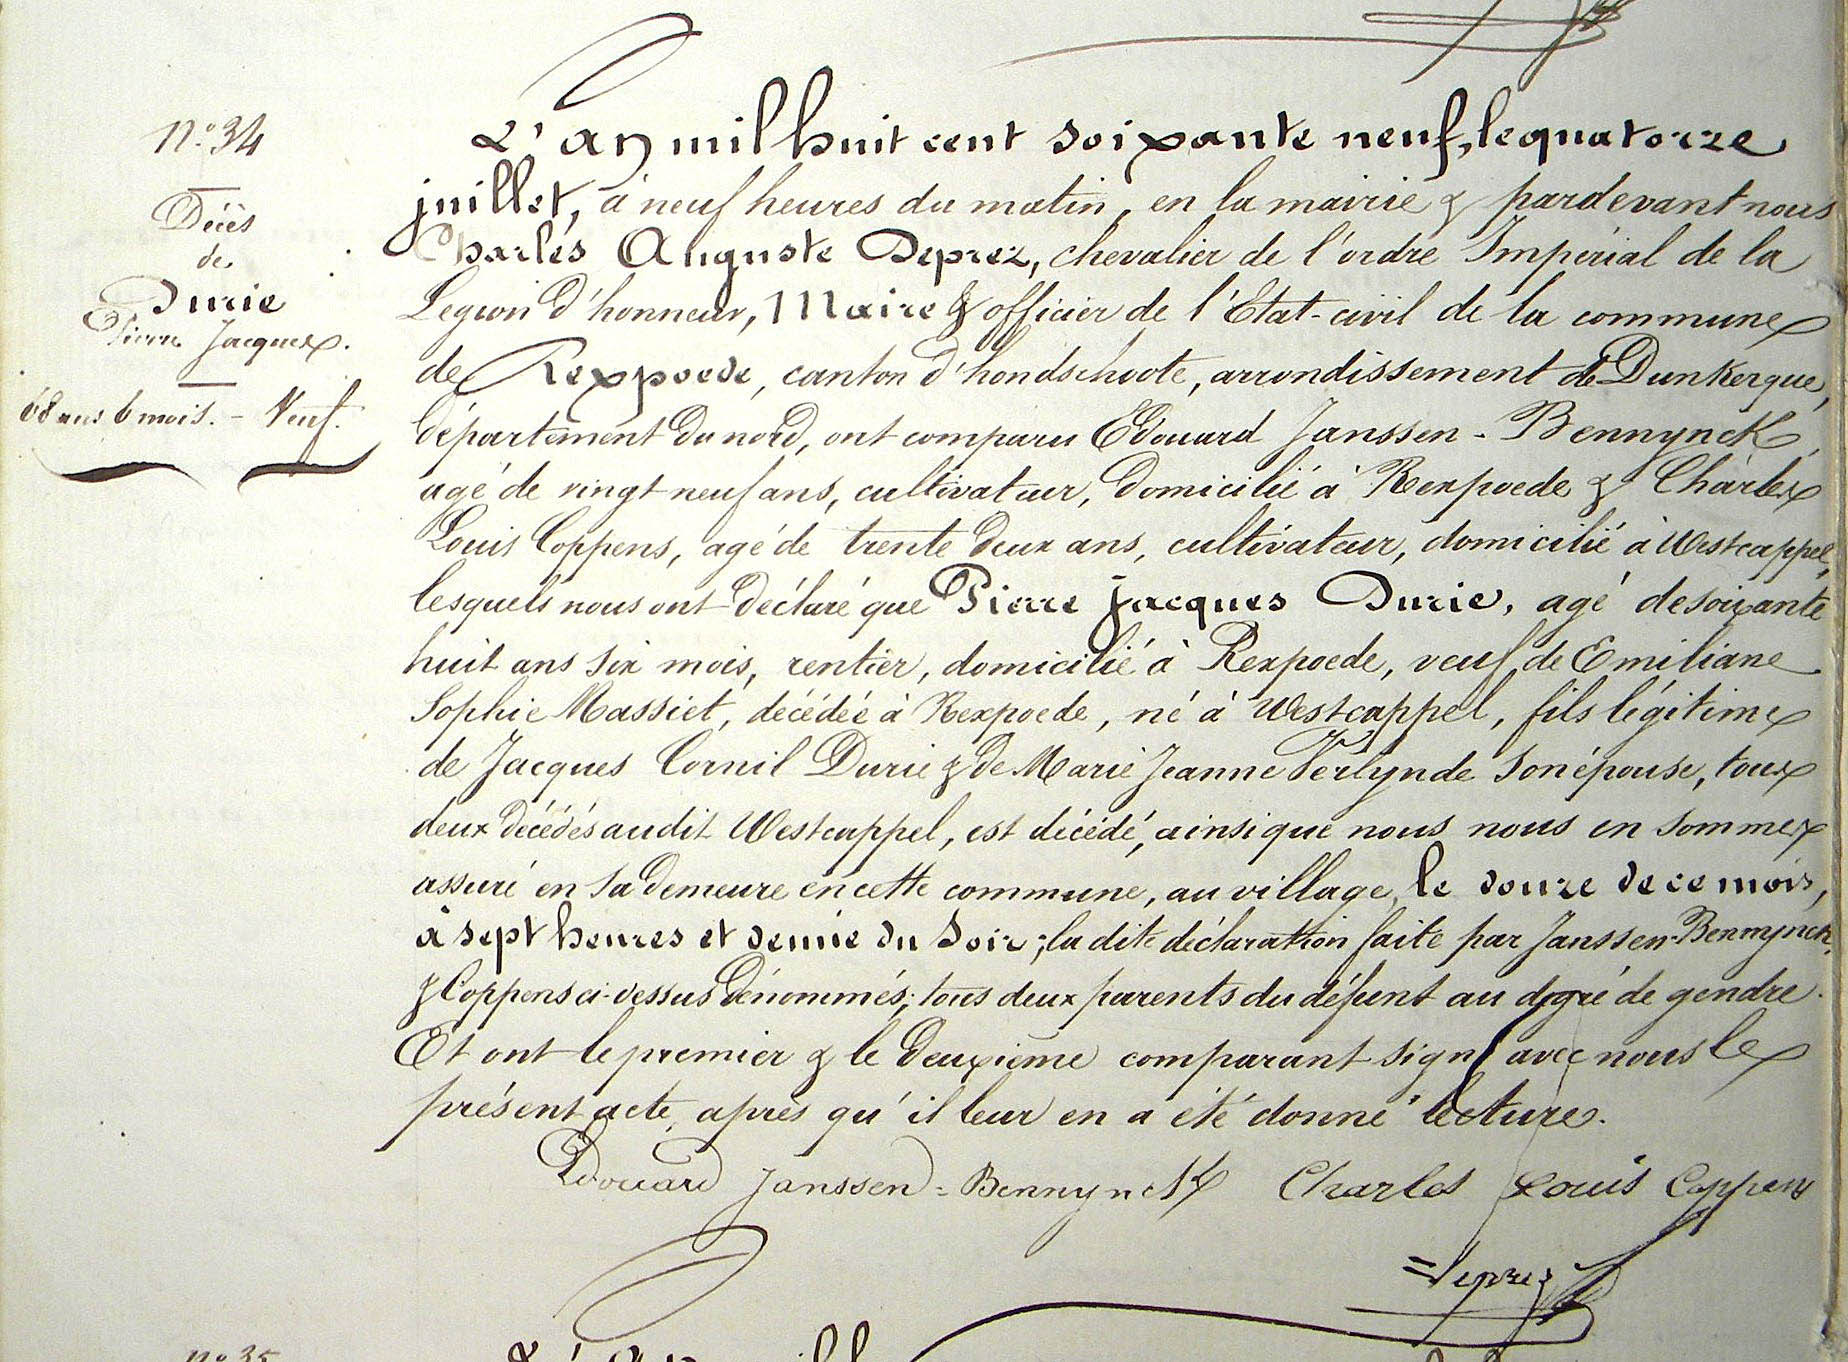 N.º 34
Décès
de
Durie
Pierre Jacques.
68 ans 6 mois. - Veuf.
L'an mil huit cent soixante neuf, le quatorze
juillet, à neuf heures du matin, en la mairie & pardevant nous
Charles Auguste Deprez, chevalier de l'ordre Impérial de la
Legion d'honneur, Maire & officier de l'Etat-civil de la commune
de Rexpoede, canton d'hondschoote, arrondissement de Dunkerque,
département du nord, ont comparu Edouard Janssen-Bennynck,
agé de vingt neuf ans, cultivateur, domicilié à Rexpoede & Charles
Louis Coppens, agé de trente deux ans, cultivateur, domicilié à Westcappel,
lesquels nous ont déclaré que Pierre Jacques Durie, agé de soixante
huit ans six mois, rentier, domicilié à Rexpoede, veuf de Emiliane
Sophie Massiet, décédée à Rexpoede, né à Westcappel, fils légitime
de Jacques Cornil Durie & de Marie Jeanne Verlynde son épouse, tous
deux décédés audit Westcappel, est décédé, ainsi que nous nous en sommes
assuré en sa demeure en cette commune, au village, le douze de ce mois,
à sept heures et demie du soir; la dite déclaration faite par Janssen-Bennynck
& Coppens ci-dessus dénommés; tous deux parents du défunt au degré de gendre.
Et ont le premier & le deuxième comparant signé avec nous le
présent acte, après qu'il leur en a été donné lecture.
Edouard Janssen=Bennynck Charles Louis Coppens
Deprez
N.º 35
L'An mil